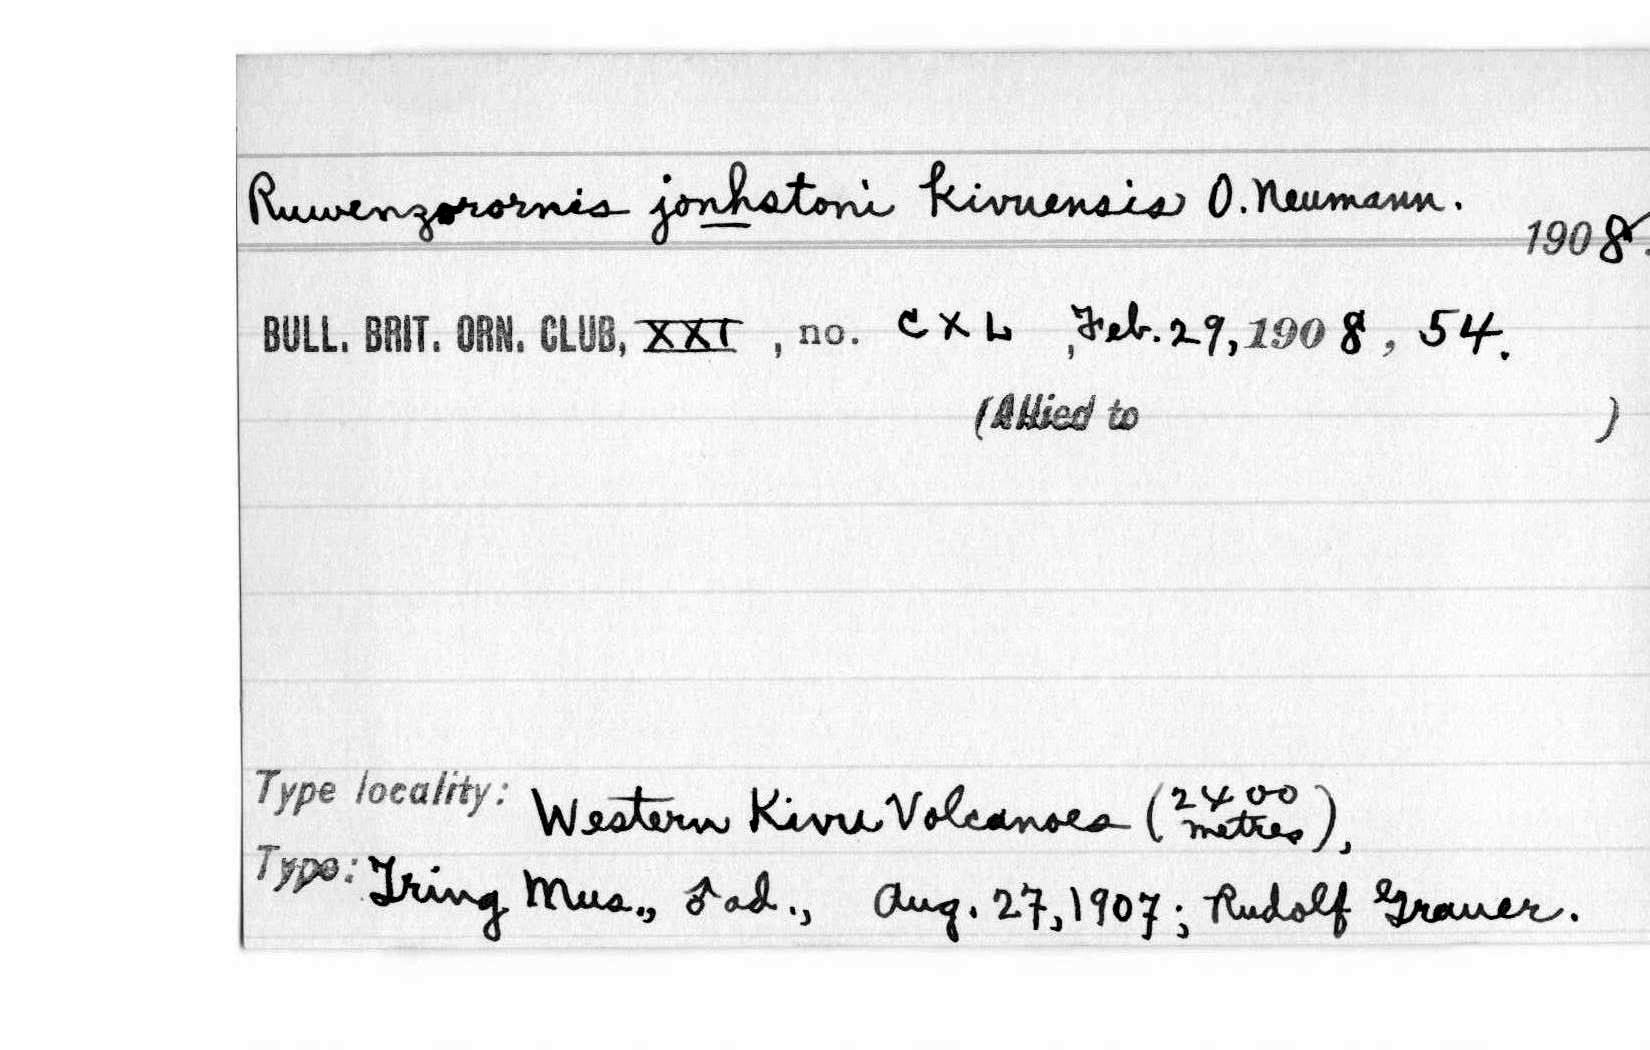 Ruwenzorornis jonhstoni kivuensis O. Neumann.
1908.
BULL. BRIT. ORN. CLUB, XXI, no. CXL, Feb. 29, 1908, 54.
(Allied to )
Type locality: Western Kivu Volcanoes (2400 metres),
Type: Tring Mus., ♂ ad., Aug. 27, 1907; Rudolf Grauer.